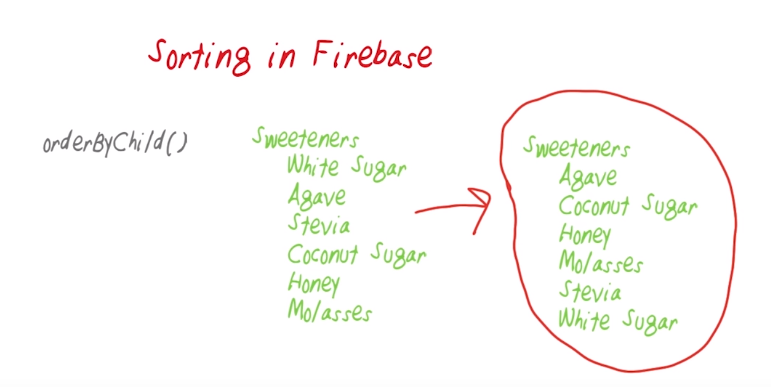 Sorting in Firebase
orderByChild()
Sweeteners
White Sugar
Agave
Stevia
Coconut Sugar
Honey
Molasses
Sweeteners
Agave
Coconut Sugar
Honey
Molasses
Stevia
White Sugar